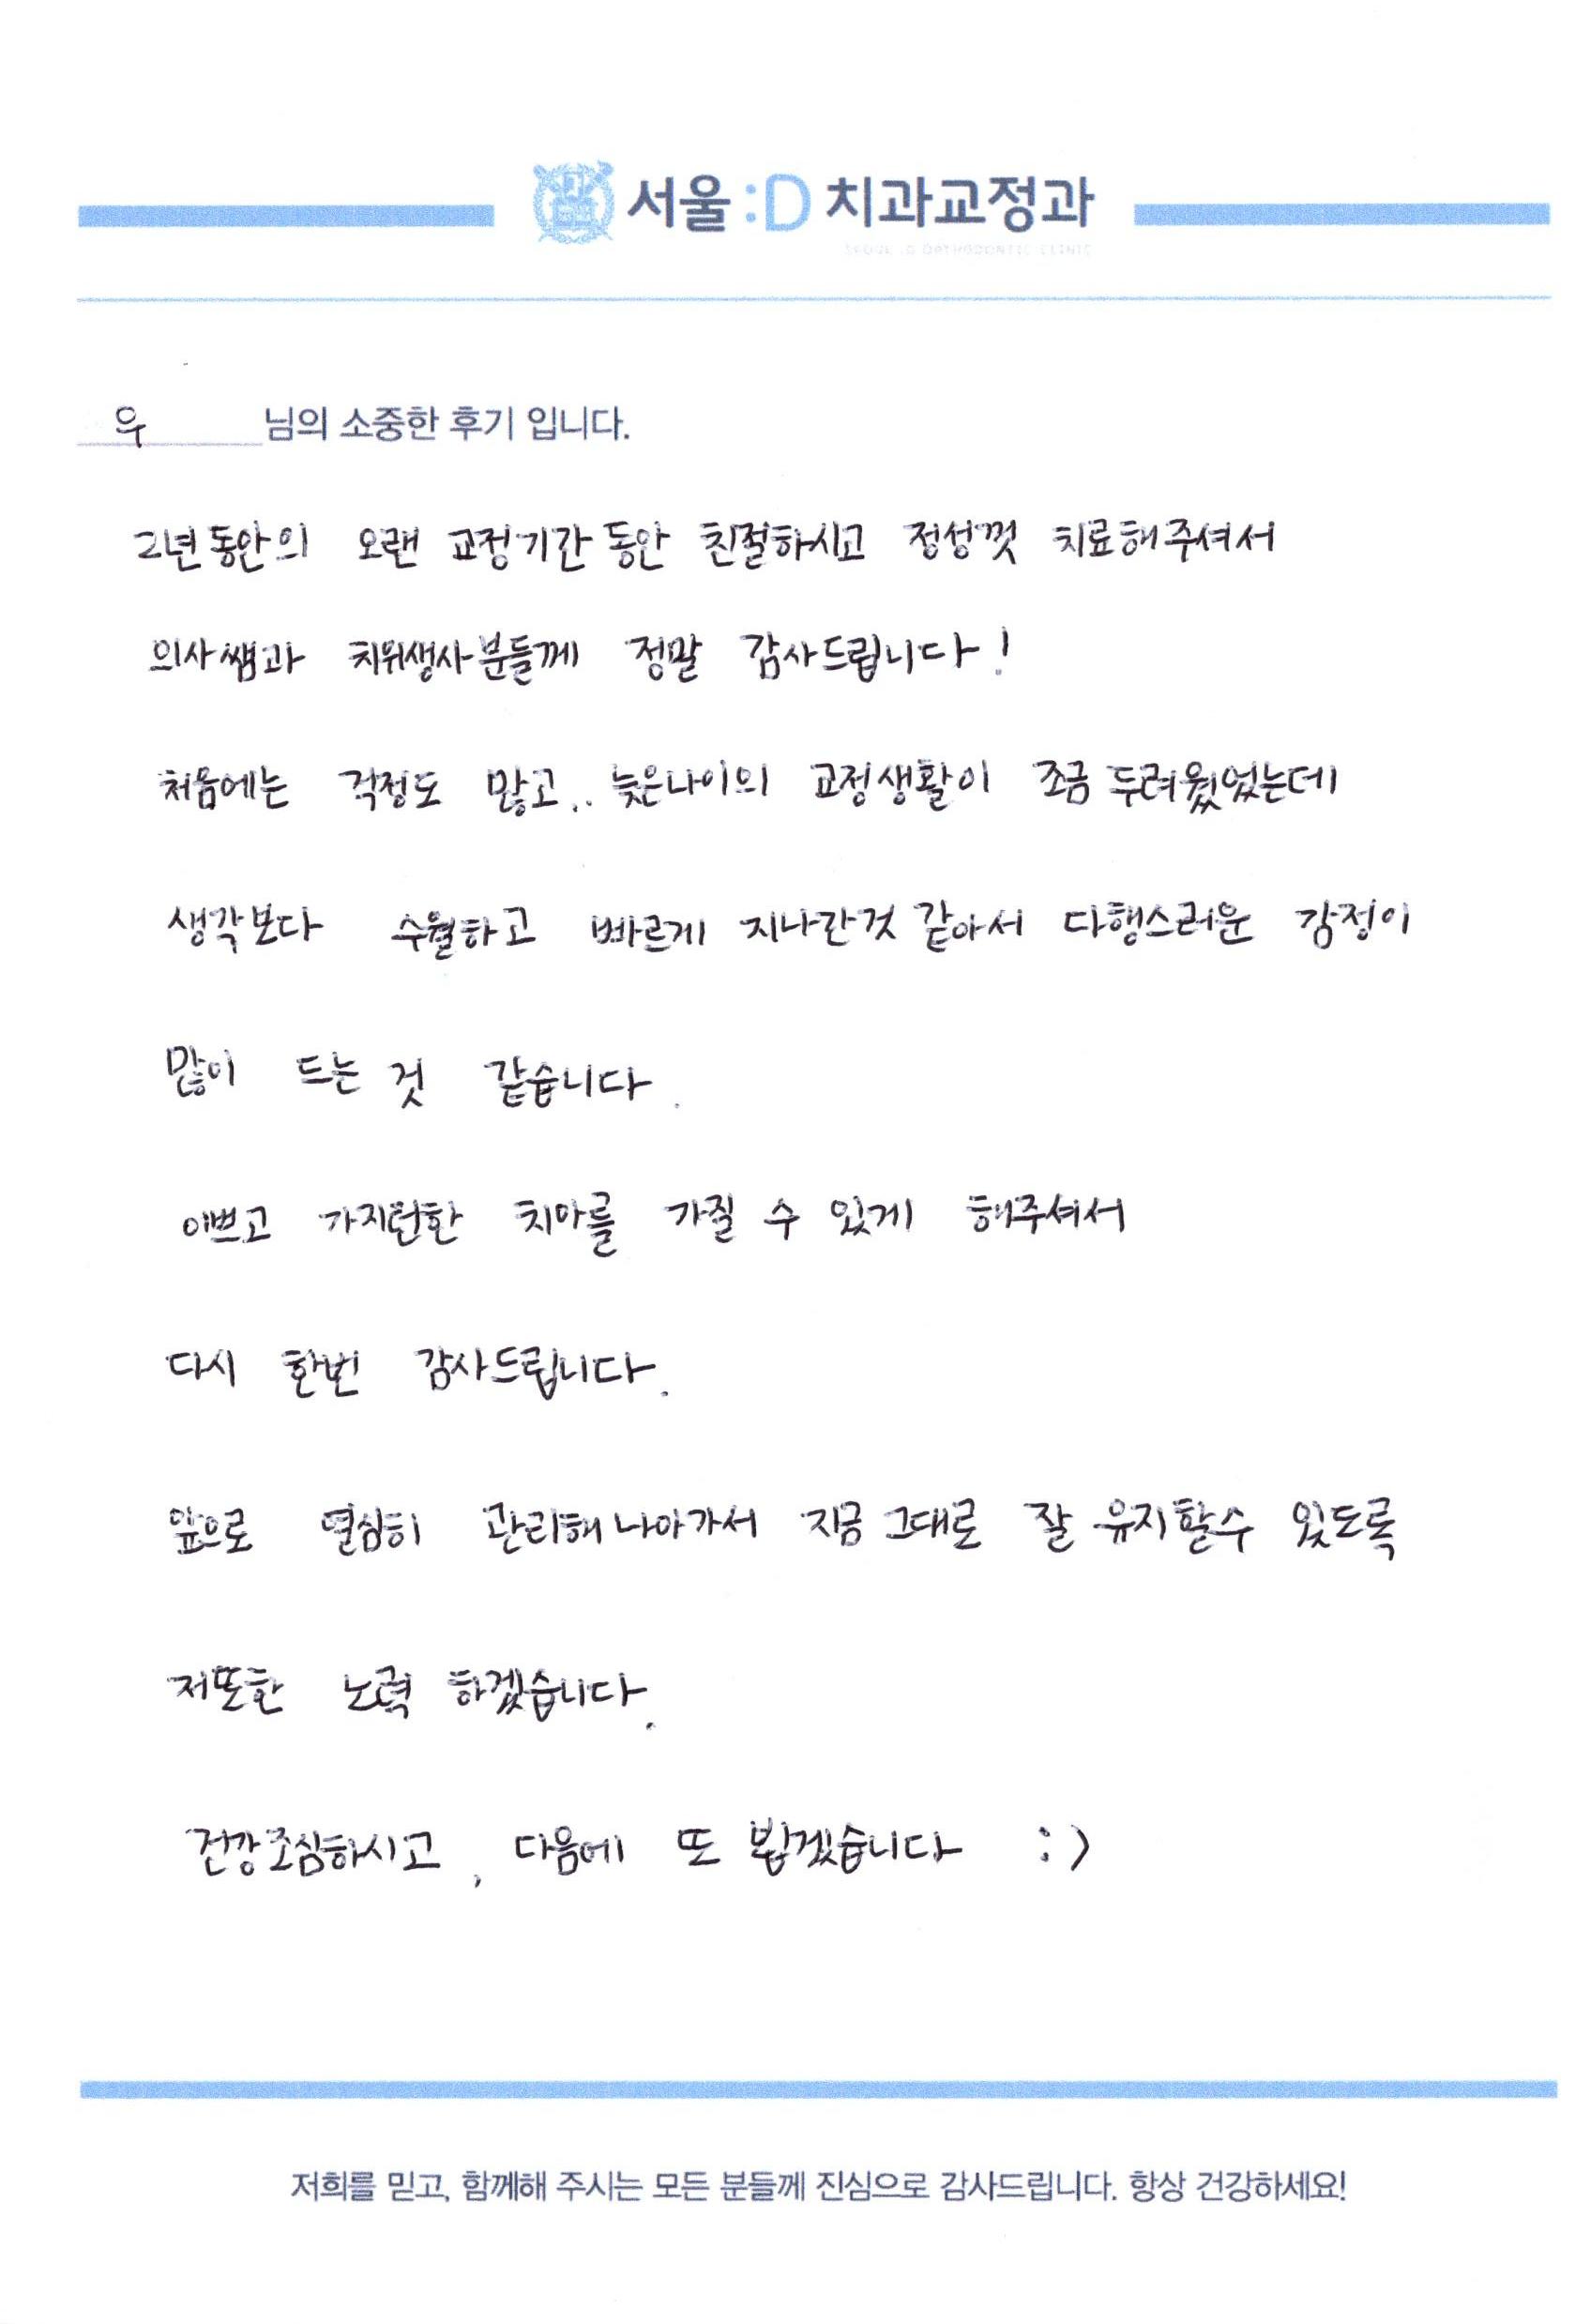 서울:D 치과교정과
SEOUL :D ORTHODONTIC CLINIC
우 님의 소중한 후기 입니다.
2년동안의 오랜 교정기간동안 친절하시고 정성껏 치료해주셔서
의사쌤과 치위생사분들께 정말 감사드립니다!
처음에는 걱정도 많고.. 늦은나이의 교정생활이 조금 두려웠었는데
생각보다 수월하고 빠르게 지나간것 같아서 다행스러운 감정이
많이 드는 것 같습니다.
이쁘고 가지런한 치아를 가질 수 있게 해주셔서
다시 한번 감사드립니다.
앞으로 열심히 관리해나아가서 지금 그대로 잘 유지할수 있도록
저또한 노력 하겠습니다.
건강조심하시고, 다음에 또 뵙겠습니다 :)
저희를 믿고, 함께해 주시는 모든 분들께 진심으로 감사드립니다. 항상 건강하세요!